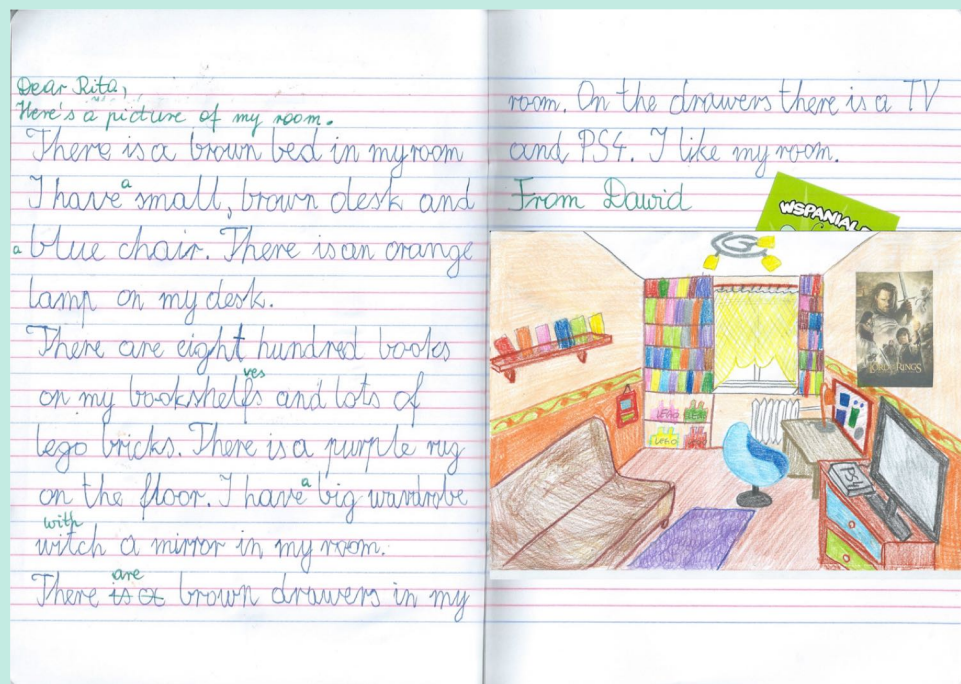 Dear Rita,
Here's a picture of my room.
There is a brown bed in my room
I have a small, brown desk and
a blue chair. There is an orange
lamp on my desk.
There are eight hundred books
ves
on my bookshelfs and lots of
lego bricks. There is a purple rug
on the floor. I have a big wardrobe
with
witch a mirror in my room.
are
There is a brown drawers in my
room. On the drawers there is a TV
and PS4. I like my room.
From Dawid
LEGO
LEGO
PS4
THE LORD OF THE RINGS